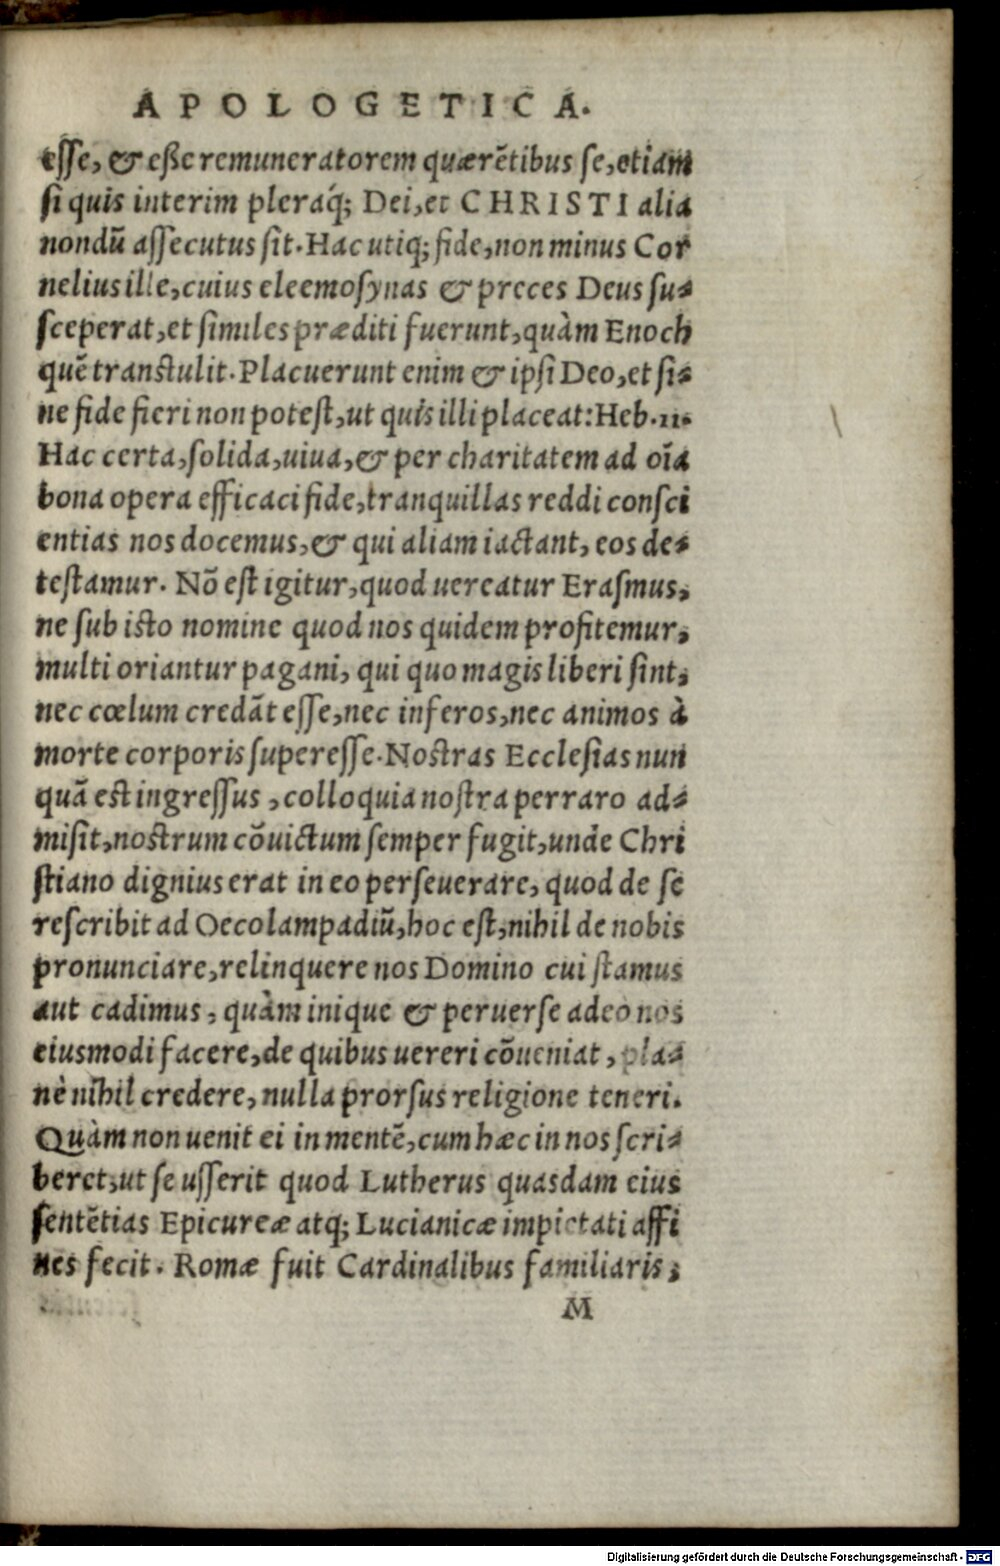 APOLOGETICA.
esse, & eße remuneratorem quærētibus se, etiam
si quis interim pleraq́; Dei, et CHRISTI alia
nondū assecutus sit. Hac utiq; fide, non minus Cor
nelius ille, cuius eleemosynas & preces Deus su-
sceperat, et similes præditi fuerunt, quàm Enoch
quē transtulit. Placuerunt enim & ipsi Deo, et si-
ne fide fieri non potest, ut quis illi placeat: Heb. 11.
Hac certa, solida, uiua, & per charitatem ad oīa
bona opera efficaci fide, tranquillas reddi consci
entias nos docemus, & qui aliam iactant, eos de-
testamur. Nō est igitur, quod uereatur Erasmus,
ne sub isto nomine quod nos quidem profitemur,
multi oriantur pagani, qui quo magis liberi sint,
nec cœlum credāt esse, nec inferos, nec animos à
morte corporis superesse. Nostras Ecclesias nun
quā est ingressus, colloquia nostra perraro ad-
misit, nostrum cōuictum semper fugit, unde Chri
stiano dignius erat in eo perseuerare, quod de se
rescribit ad Oecolampadiū, hoc est, nihil de nobis
pronunciare, relinquere nos Domino cui stamus
aut cadimus, quàm inique & peruerse adeo nos
eiusmodi facere, de quibus uereri cōueniat, pla-
nè nihil credere, nulla prorsus religione teneri.
Quàm non uenit ei in mentē, cum hæc in nos scri-
beret, ut se usserit quod Lutherus quasdam eius
sentētias Epicureæ atq; Lucianicæ impietati affi
nes fecit. Romæ fuit Cardinalibus familiaris,
M
Digitalisierung gefördert durch die Deutsche Forschungsgemeinschaft - DFG